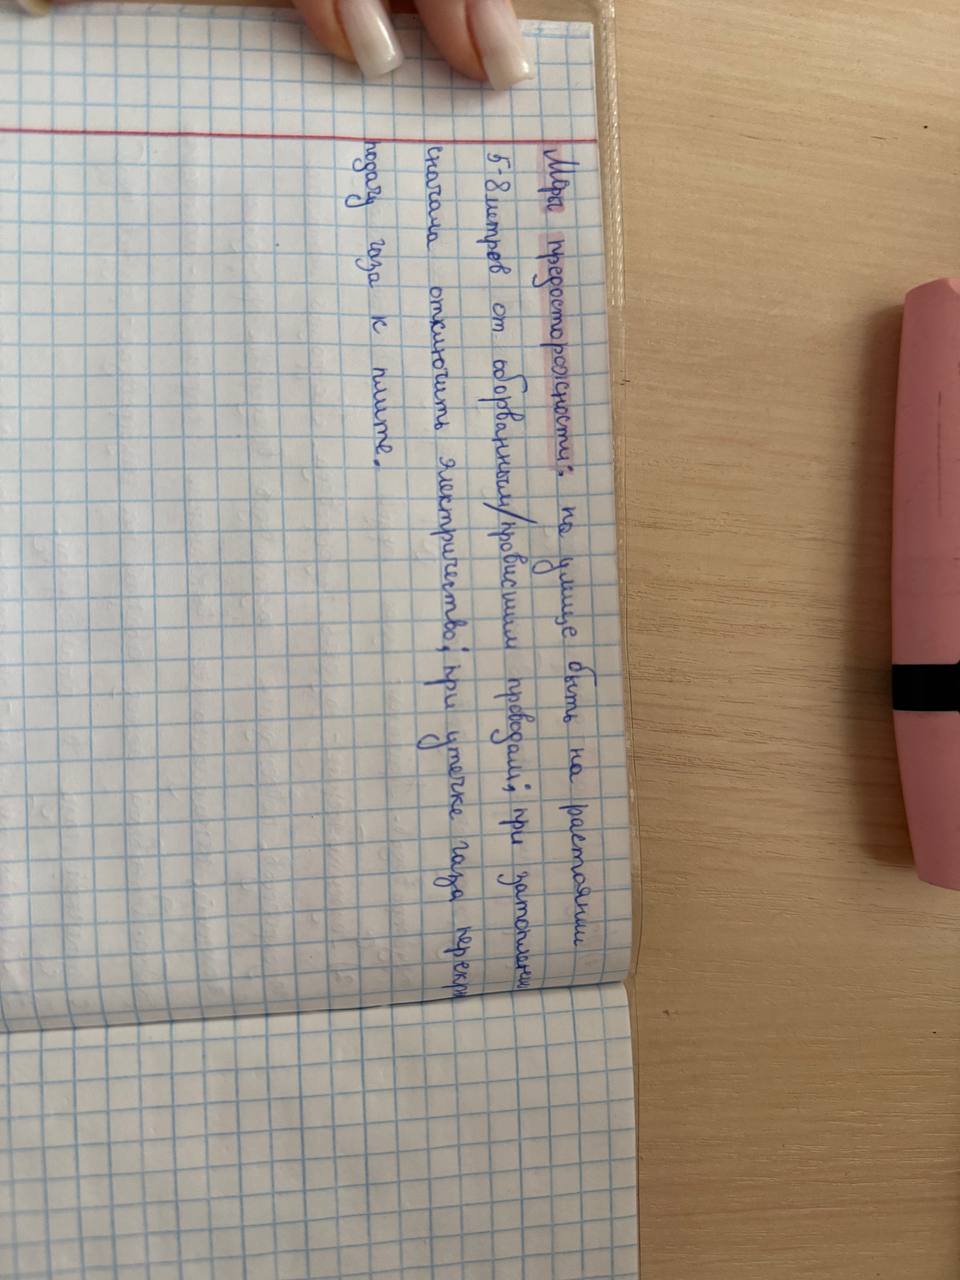 Меры предосторожности: на улице быть на растоянии
5-8 метров от оборванным/провисшим проводам; при затоплении
сначала отключить электричество; при утечке газа перекр
подачу газа к плите.